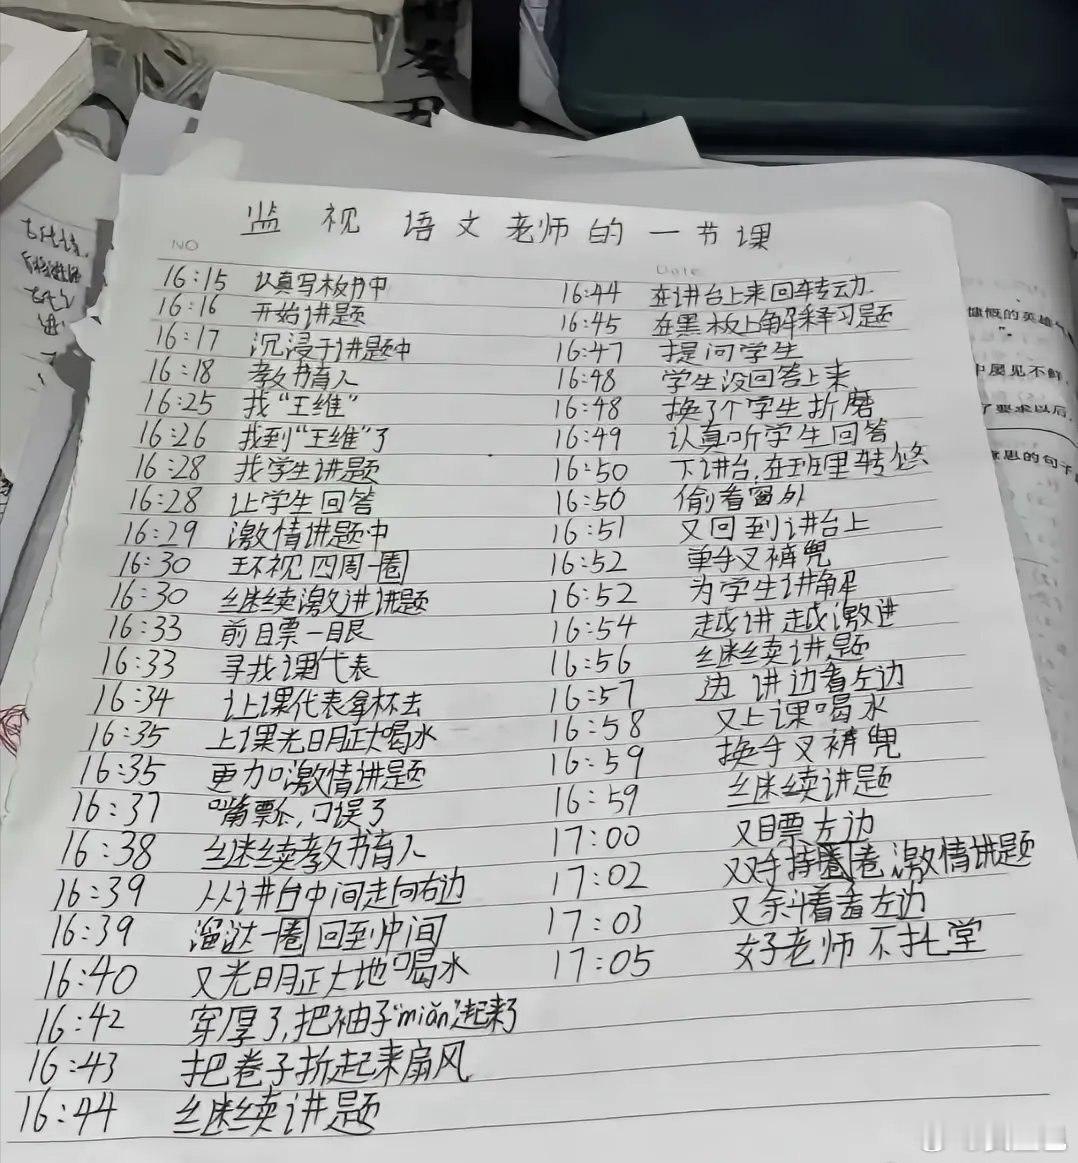 监视语文老师的一节课
NO
Date
16:15 认真写板书中
16:16 开始讲题
16:17 沉浸于讲题中
16:18 教书育人
16:25 找“王维”
16:26 找到“王维”了
16:28 找学生讲题
16:28 让学生回答
16:29 激情讲题中
16:30 环视四周一圈
16:30 继续激进讲题
16:33 前瞟一眼
16:33 寻找课代表
16:34 让课代表拿杯去
16:35 上课光明正大喝水
16:35 更加激情讲题
16:37 嘴瓢,口误了
16:38 继续教书育人
16:39 从讲台中间走向右边
16:39 溜达一圈回到中间
16:40 又光明正大地喝水
16:42 穿厚了,把袖子“miǎn”起来了
16:43 把卷子折起来扇风
16:44 继续讲题
16:44 在讲台上来回转动.
16:45 在黑板上解释习题
16:47 提问学生
16:48 学生没回答上来
16:48 换了个学生折磨
16:49 认真听学生回答
16:50 下讲台,在班里转悠
16:50 偷看窗外
16:51 又回到讲台上
16:52 单手叉裤兜
16:52 为学生讲解
16:54 越讲越激进
16:56 继续讲题
16:57 边讲边看左边
16:58 又上课喝水
16:59 换手叉裤兜
16:59 继续讲题
17:00 又瞟左边
17:02 双手捧圈卷激情讲题
17:03 又斜着看左边
17:05 好老师不拖堂
慷慨的英雄
中屡见不鲜,
了要求以后,
意思的句子